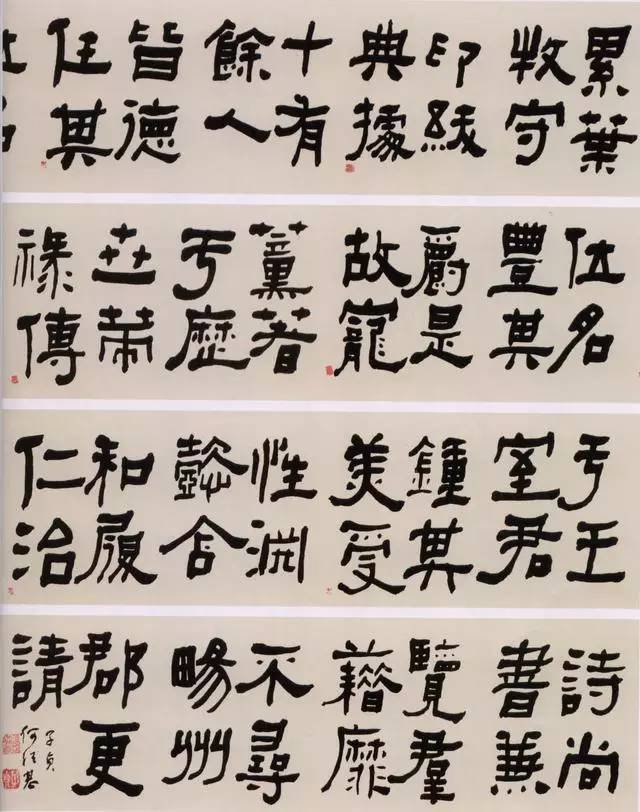 累葉
牧守
印紱
典據
十有
餘人
皆德
任其
位名
位名
豐其
爵是
故寵
薰著
于歷
世策
祿傳
于王
室君
鍾其
美受
性淵
懿含
和履
仁治
詩尚
書兼
覽羣
藉靡
不尋
暢州
郡更
請
子貞
何紹基